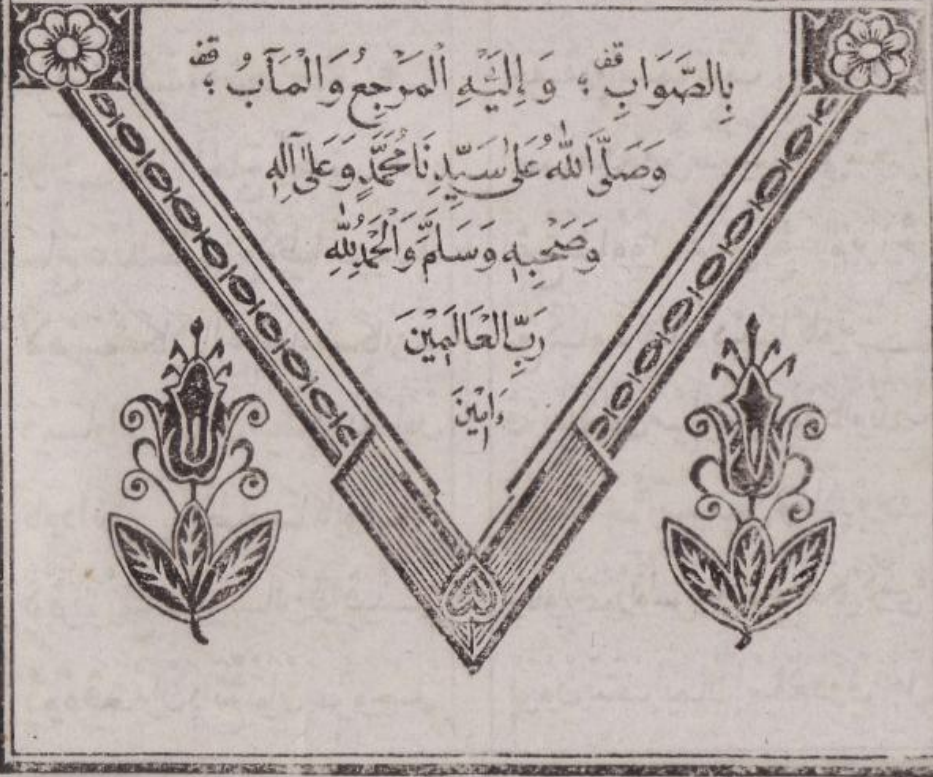 بِالصَّوَابِ قف ؛ وَ إِلَيْهِ الْمَرْجِعُ وَالْمَآبُ قف ؛
وَصَلَّى اللهُ عَلَى سَيِّدِنَا مُحَمَّدٍ وَعَلَى آلِهِ
وَصَحْبِهِ وَسَلَّمَ وَالْحَمْدُ لِلّٰهِ
رَبِّ الْعَالَمِيْنَ
ءَامِيْنَ